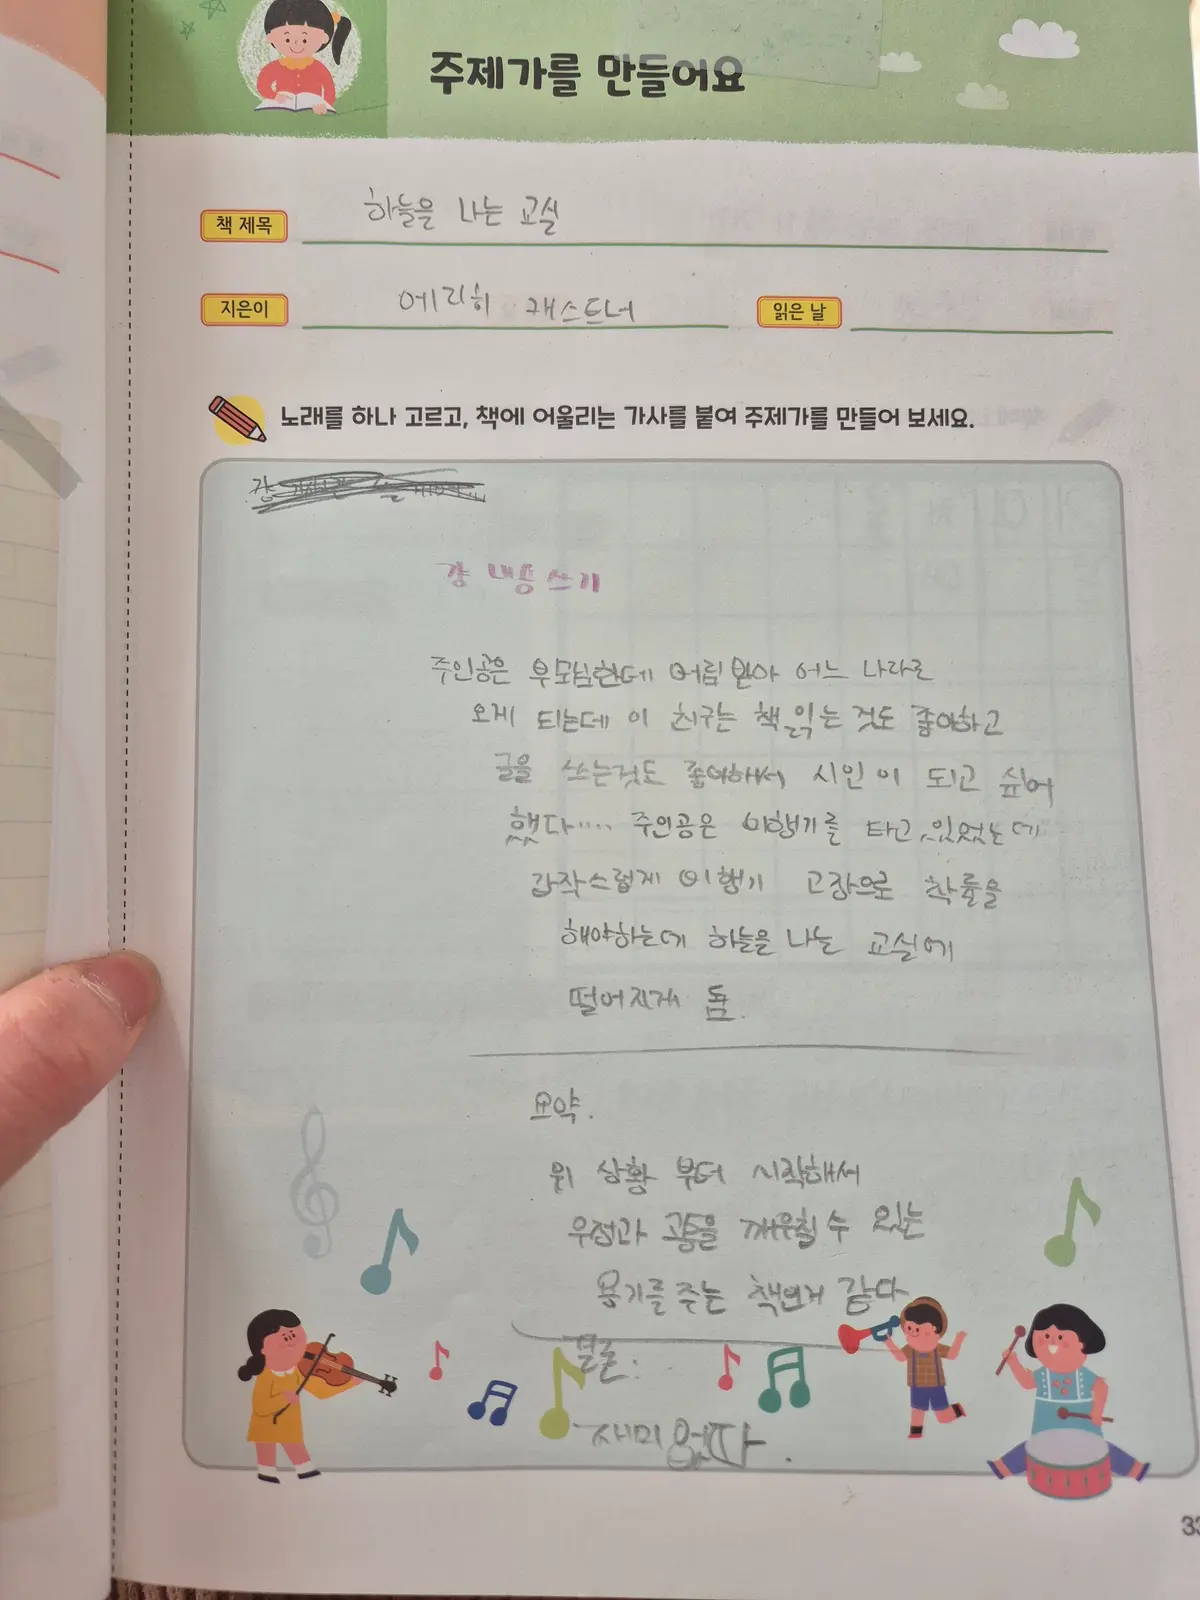 주제가를 만들어요
책 제목 하늘을 나는 교실
지은이 에리히 캐스트너 읽은 날
노래를 하나 고르고, 책에 어울리는 가사를 붙여 주제가를 만들어 보세요.
걍 내용쓰기
주인공은 부모님한테 버림받아 어느 나라로
오게 되는데 이 친구는 책 읽는 것도 좋아하고
글을 쓰는것도 좋아해서 시인이 되고 싶어
했다.... 주인공은 비행기를 타고 있었는데
갑작스럽게 비행기 고장으로 착륙을
해야하는데 하늘을 나는 교실에
떨어지게 됨.
요약.
위 상황 부터 시작해서
우정과 을 깨우칠 수 있는
용기를 주는 책인거 같다
결론.
재미 없따.
33